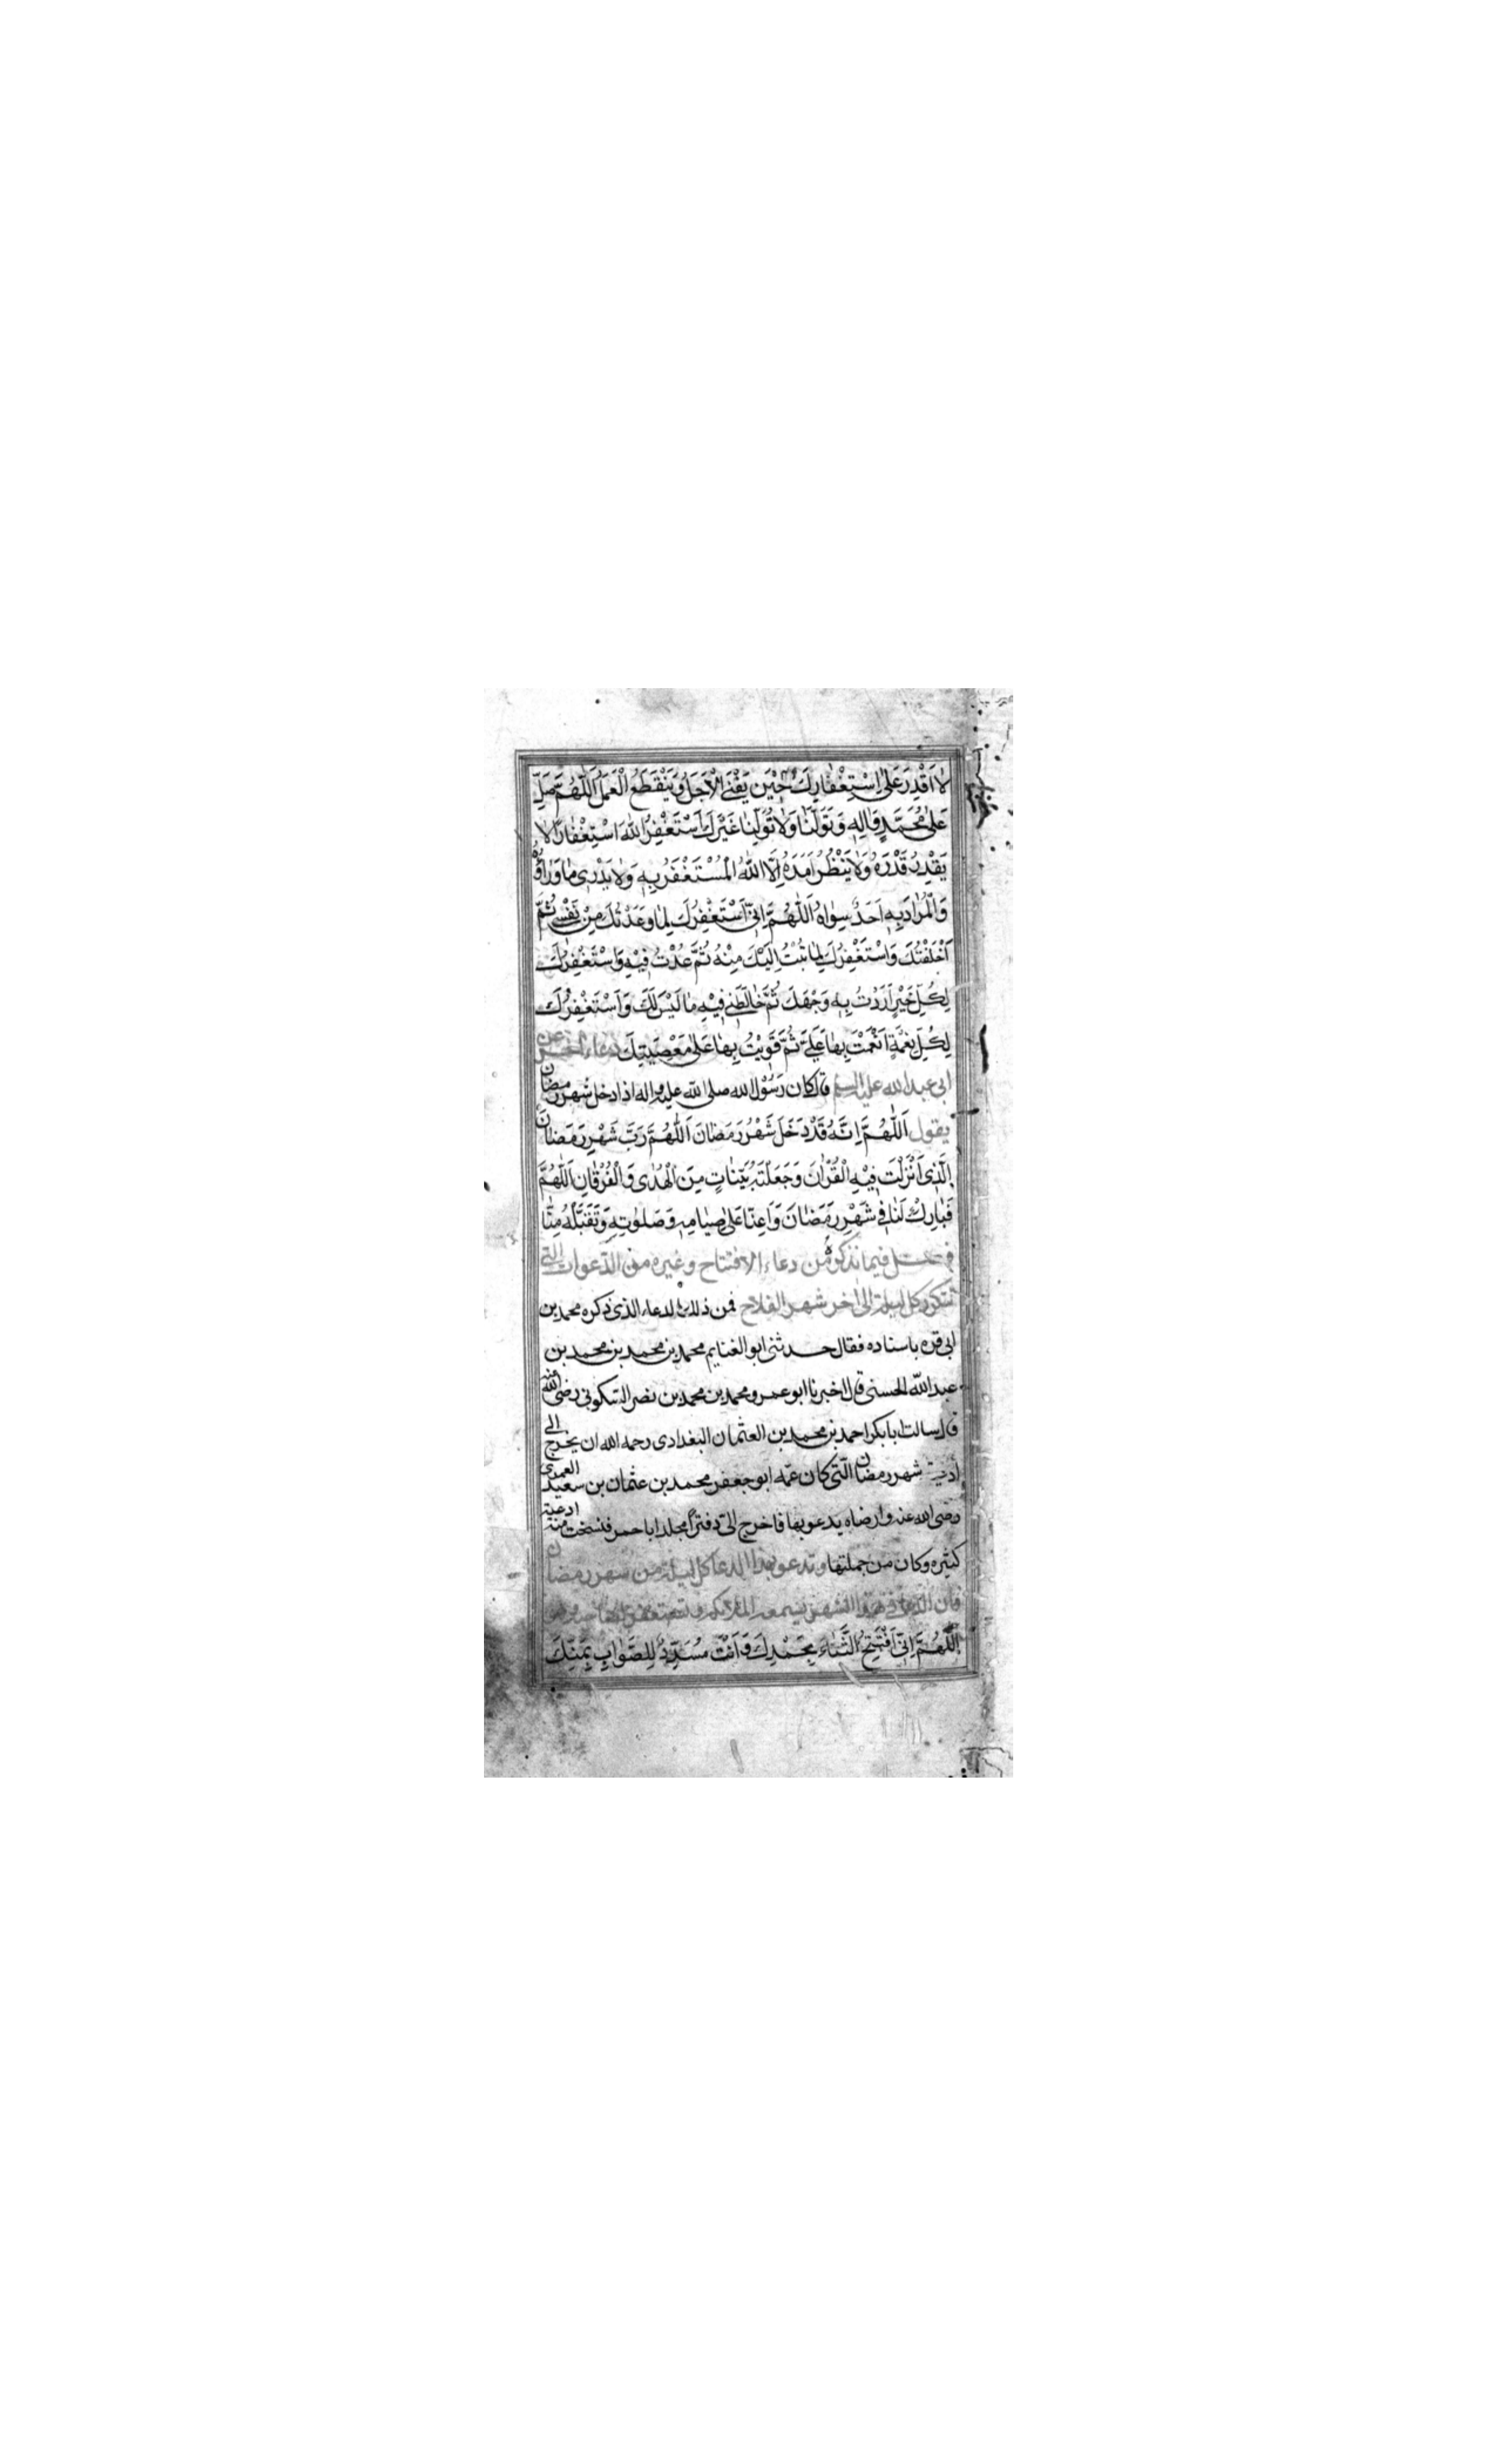 لَا اَقْدِرُ عَلَى اسْتِغْفٰارِكَ حٖيْنَ يَفْنَى الْاَجَلُ وَ يَنْقَطِعُ الْعَمَلُ اَللّٰهُمَّ صَلِّ
عَلٰى مُحَمَّدٍ وَاٰلِهٖ وَ تَوَلَّنٰا وَلٰا تُوَلِّنٰا غَيْرَكَ اَسْتَغْفِرُ اللّٰهَ اسْتِغْفٰارًا لٰا
يَقْدِرُ قَدْرَهُ وَلٰا يَنْظُرُ اَمَدَهُ اِلَّا اللّٰهُ الْمُسْتَغْفَرُ بِهٖ وَلٰا يَدْرٖى مٰا وَرٰاؤُهُ
وَالْمُرٰادَ بِهٖ اَحَدٌ سِوٰاهُ اَللّٰهُمَّ اِنّٖى اَسْتَغْفِرُكَ لِمٰا وَعَدْتُكَ مِنْ نَفْسٖى ثُمَّ
اَخْلَفْتُكَ وَاسْتَغْفِرُكَ لِمٰا تُبْتُ اِلَيْكَ مِنْهُ ثُمَّ عُدْتُ فٖيْهِ وَاسْتَغْفِرُكَ
لِكُلِّ خَيْرٍ اَرَدْتُ بِهٖ وَجْهَكَ ثُمَّ خٰالَطَنٖى فٖيْهِ مٰا لَيْسَ لَكَ وَ اَسْتَغْفِرُكَ
لِكُلِّ نِعْمَةٍ اَنْعَمْتَ بِهٰا عَلَىَّ ثُمَّ قَوٖيْتُ بِهٰا عَلٰى مَعْصِيَتِكَ دعاء اخر عن
ابى عبد الله عليه السلم قال كان رسول الله صلى الله عليه واله اذا دخل شهر رمضان
يقول اَللّٰهُمَّ اِنَّهُ قَدْ دَخَلَ شَهْرُ رَمَضٰانَ اَللّٰهُمَّ رَبَّ شَهْرِ رَمَضٰانَ
الَّذٖى اَنْزَلْتَ فٖيْهِ الْقُرْاٰنَ وَ جَعَلْتَهُ بَيِّنٰاتٍ مِنَ الْهُدٰى وَ الْفُرْقٰانِ اَللّٰهُمَّ
فَبٰارِكْ لَنٰا فٖى شَهْرِ رَمَضٰانَ وَ اَعِنّٰا عَلٰى صِيٰامِهٖ وَ صَلَوٰاتِهٖ وَ تَقَبَّلْهُ مِنّٰا
فصل فيما نذكره من دعاء الافتتاح و غيره من الدعوات التى
تتكرر كل ليلة الى اخر شهر الفلاح فمن ذلك الدعاء الذى ذكره محمد بن
ابى قره باسناده فقال حدثنى ابو الغنايم محمد بن محمد بن محمد بن
عبد الله الحسنى قال اخبرنا ابو عمرو محمد بن محمد بن نصر السكونى رضى الله عنه
قال سالت ابا بكر احمد بن محمد بن العثمان البغدادى رحمه الله ان يخرج الى
ادعية شهر رمضان التى كان عمه ابو جعفر محمد بن عثمان بن سعيد العمرى
رضى الله عنه وارضاه يدعو بها فاخرج الى دفترا مجلدا باحمر فنسخت منه ادعية
كثيره وكان من جملتها و تدعو بهذا الدعا كل ليلة من شهر رمضان
فان الدعا فى هذا الشهر تسمعه الملائكه و تستغفر لصاحبه وهو
اَللّٰهُمَّ اِنّٖى اَفْتَتِحُ الثَّنٰاءَ بِحَمْدِكَ وَ اَنْتَ مُسَدِّدٌ لِلصَّوٰابِ بِمَنِّكَ